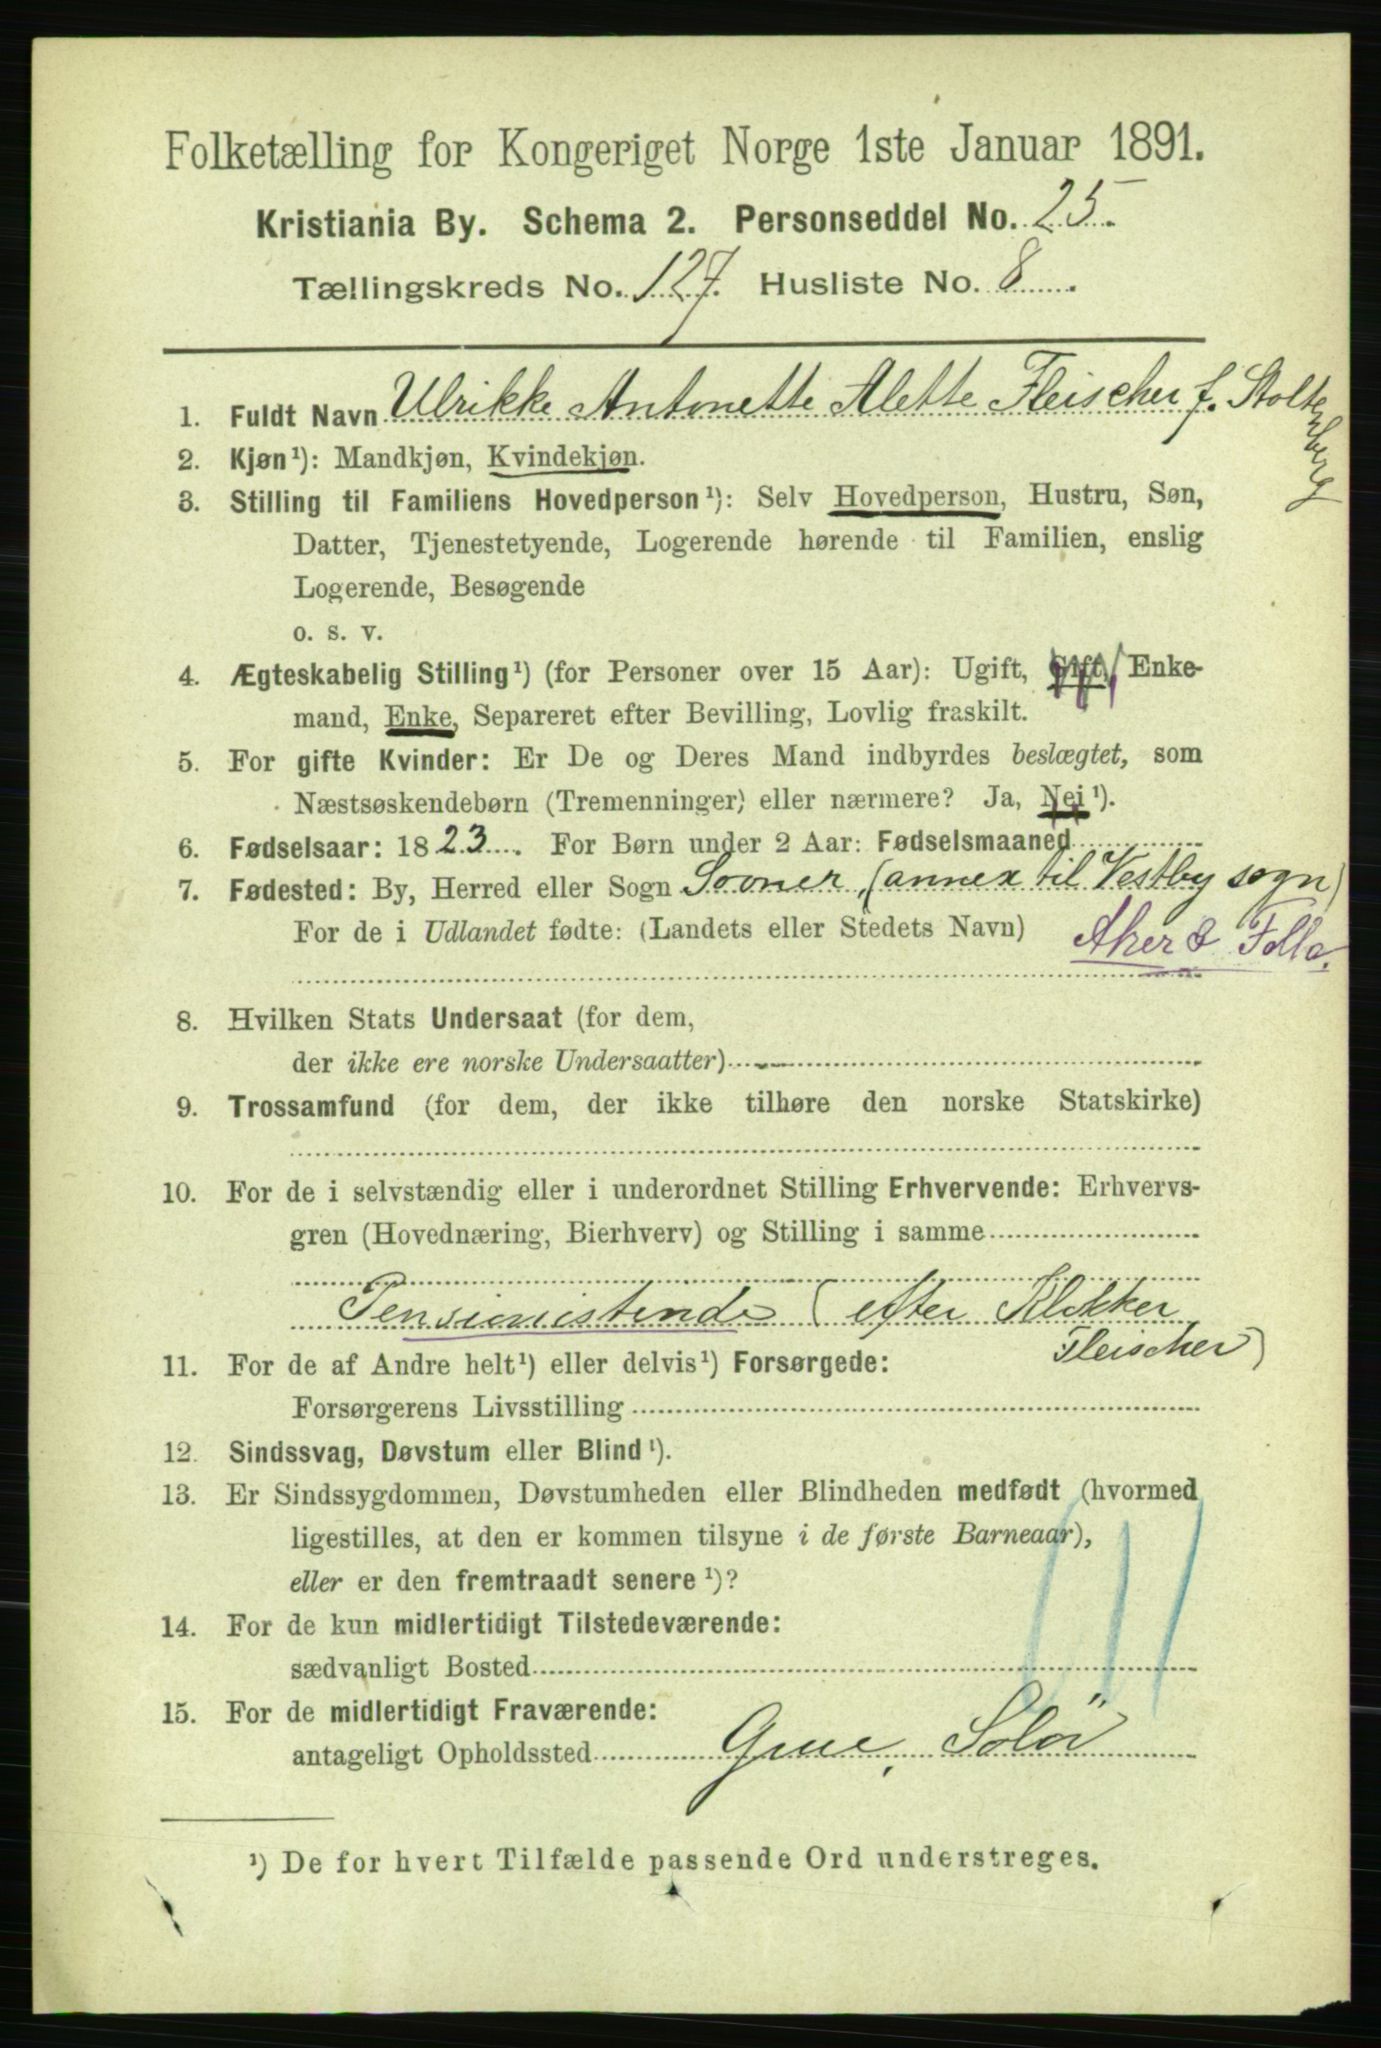 Folketælling for Kongeriget Norge 1ste Januar 1891.
Kristiania By. Schema 2. Personseddel No. 25.
Tællingskreds No. 127. Husliste No. 8.
1. Fuldt Navn Ulrikke Antonette Alette Fleischer f. Stoltenberg
2. Kjøn¹): Mandkjøn, Kvindekjøn.
3. Stilling til Familiens Hovedperson¹): Selv Hovedperson, Hustru, Søn,
Datter, Tjenestetyende, Logerende hørende til Familien, enslig
Logerende, Besøgende
o. s. v.
4. Ægteskabelig Stilling¹) (for Personer over 15 Aar): Ugift, Gift, Enke-
mand, Enke, Separeret efter Bevilling, Lovlig fraskilt.
5. For gifte Kvinder: Er De og Deres Mand indbyrdes beslægtet, som
Næstsøskendebørn (Tremenninger) eller nærmere? Ja, Nei¹).
6. Fødselsaar: 1823. For Børn under 2 Aar: Fødselsmaaned
7. Fødested: By, Herred eller Sogn Sooner, (annex til Vestby sogn)
For de i Udlandet fødte: (Landets eller Stedets Navn) Aker & Follo.
8. Hvilken Stats Undersaat (for dem,
der ikke ere norske Undersaatter)
9. Trossamfund (for dem, der ikke tilhøre den norske Statskirke)
10. For de i selvstændig eller i underordnet Stilling Erhvervende: Erhvervs-
gren (Hovednæring, Bierhverv) og Stilling i samme
Pensionistinde (efter Klokker
Fleischer)
11. For de af Andre helt¹) eller delvis¹) Forsørgede:
Forsørgerens Livsstilling
12. Sindssvag, Døvstum eller Blind¹).
13. Er Sindssygdommen, Døvstumheden eller Blindheden medfødt (hvormed
ligestilles, at den er kommen tilsyne i de første Barneaar),
eller er den fremtraadt senere¹)?
14. For de kun midlertidigt Tilstedeværende:
sædvanligt Bosted
15. For de midlertidigt Fraværende:
antageligt Opholdssted Grue, Solör
¹) De for hvert Tilfælde passende Ord understreges.